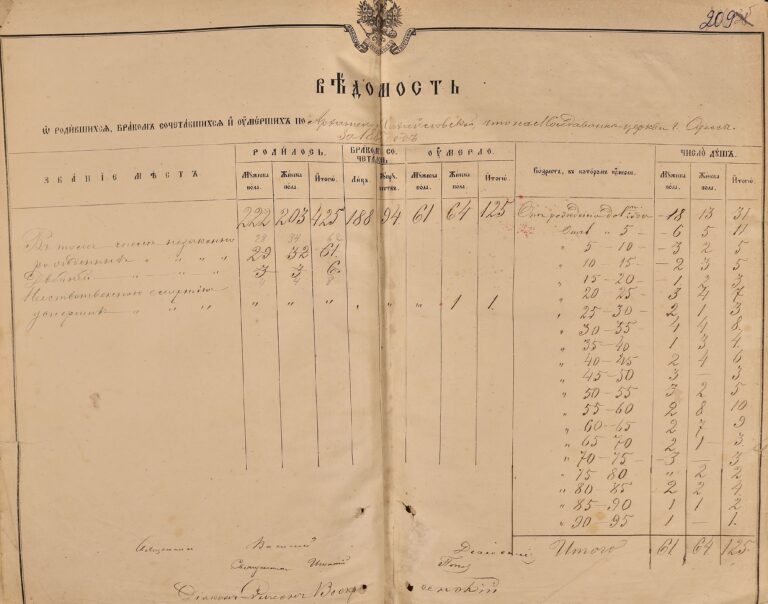 209
ВѢДОМОСТЬ
Ѡ РОДИВШИХСЯ, БРАКОМЪ СОЧЕТАВШИХСЯ И ОУМЕРШИХЪ ПО Архангело Михайловской, что на Молдаванкѣ церкви г. Одессы
За годъ
ЗВАНІЕ МѢСТЪ
РОДИЛОСЬ. БРАКОМЪ СОЧЕТАЛ. ОУМЕРЛО. Возрастъ, въ которомъ ЧИСЛО ДУШЪ.
Мужеска пола. Женска пола. Итого. Лицъ. Мужеска пола. Женска пола. Итого. Мужеска пола. Женска пола. Итого.
222 203 425 188 94 61 64 125 Отъ рожденія до 18 13 31
Въ томъ числѣ незаконно " 5 - 6 5 11
рожденныхъ " " " " 29 32 61 " 5 - 10 - 3 2 5
" " " 3 3 6 " 10 15 - 2 3 5
" 15 - 20 - 1 2 3
Неестественною смертію " " " " " " 1 1 " 20 25 - 3 4 7
умершихъ " " " " 25 - 30 - 2 1 3
" 30 - 35 - 4 4 8
" 35 - 40 1 3 4
" 40 - 45 2 4 6
" 45 - 50 3 - 3
" 50 - 55 3 2 5
" 55 - 60 2 8 10
" 60 - 65 2 7 9
" 65 70 2 1 3
" 70 - 75 - 3 - 3
" 75 80 " 2 2
" 80 - 85 2 2 4
" 85 - 90 1 1 2
" 90 - 95 1 - 1
Итого 61 64 125
Священникъ Василій
Священникъ
Діаконъ